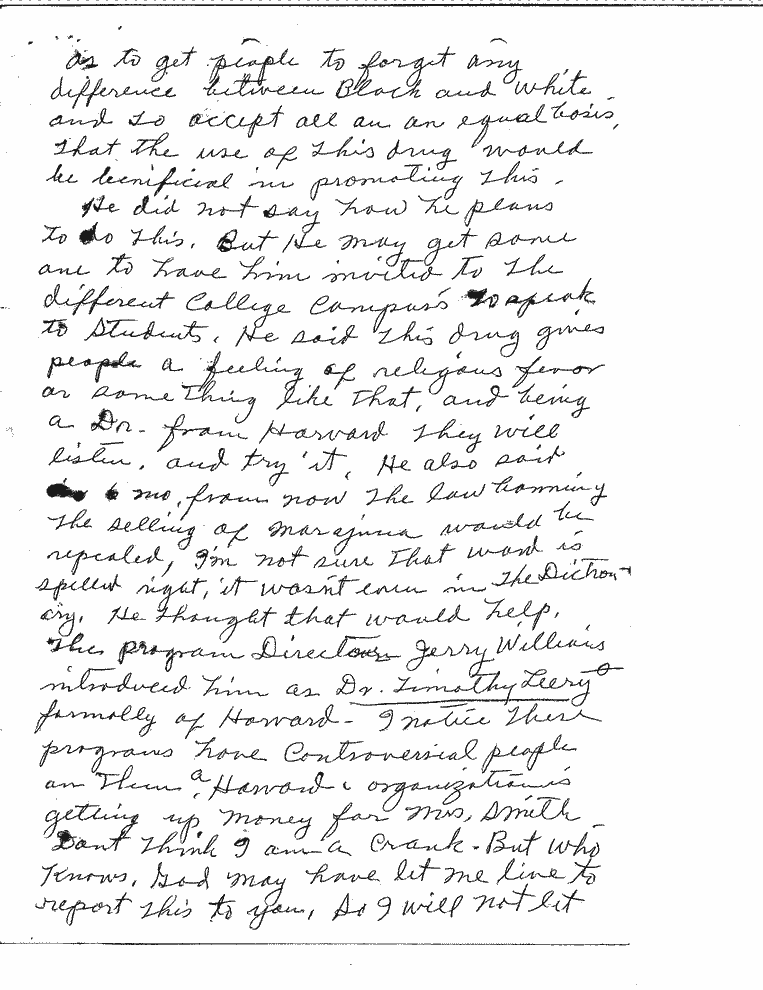 as to get people to forget any
difference between Black and White
and so accept all an an equal basis,
that the use of this drug would
be benificial in promoting this.
He did not say how he plans
to do this. But He may get some
one to have him invited to the
different College Campus's to speak
to Students. He said this drug gives
people a feeling of religious fevor
or something like that, and being
a Dr. from Harvard They will
listen, and try it, He also said
6 mo, from now the law banning
the selling of marajuna would be
repealed, I'm not sure that word is
spelled right, it wasn't even in The Diction
ary. He thought that would help.
The program Director Jerry Williams
introduced him as Dr. Timothy Leery
formally of Harvard - I notice These
programs have Controversial people
on Them a Harvard organization is
getting up money for Mrs. Smith
Dont Think I am a Crank - But who
Knows, God may have let me live to
report this to you, So I will not let